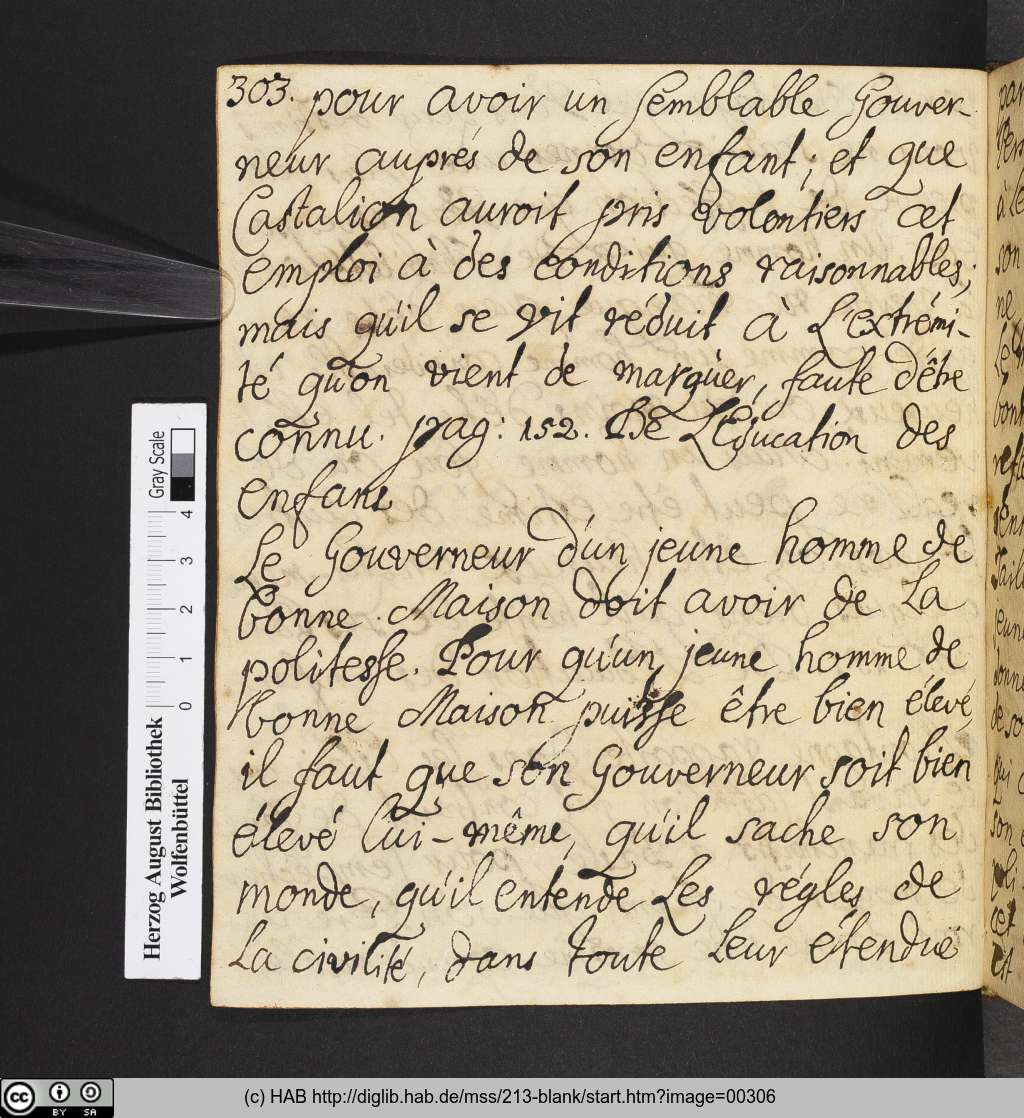 303. pour avoir un semblable Gouver-
neur auprés de son enfant; et que
Castalion auroit pris volontiers cet
emploi à des conditions raisonnables;
mais qu'il se vit réduit à L'extrémi-
té qu'on vient de marquer, faute d'être
connu. pag: 152. De L'Education des
enfans
Le Gouverneur d'un jeune homme de
bonne Maison doit avoir de La
politesse. Pour qu'un jeune homme de
bonne Maison puisse être bien élevé,
il faut que son Gouverneur soit bien
élevé lui-même, qu'il sache son
monde, qu'il entende Les régles de
La civilité, dans toute Leur étenduë
Herzog August Bibliothek
Wolfenbüttel
Gray Scale
0 1 2 3 4
cc BY SA
(c) HAB http://diglib.hab.de/mss/213-blank/start.htm?image=00306